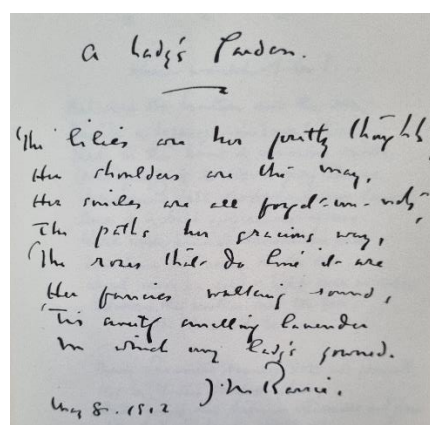 A Lady's Garden.
The lilies are her pretty thoughts,
Her shoulders are the may,
Her smiles are all forget-me-nots,
The path's her gracious way,
The roses that do line it are
Her fancies walking round,
'Tis sweetly smelling lavender
In which my lady's gowned.
J. M. Barrie.
May 8. 1912